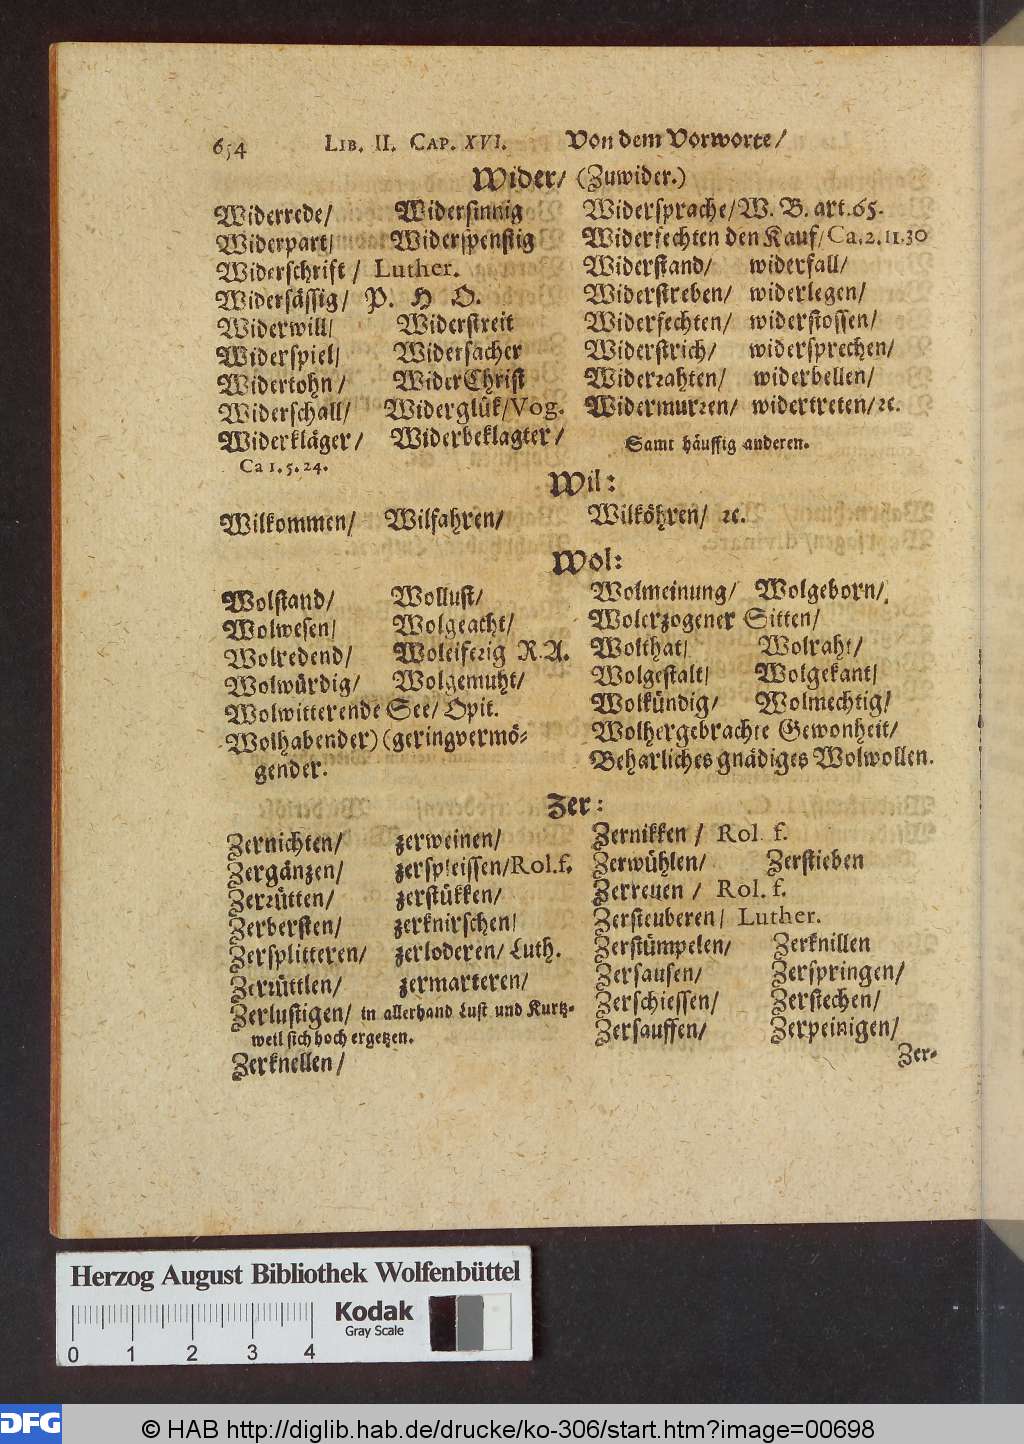 654 LIB. II. CAP. XVI. Von dem Vorworte/
Wider/ (Zuwider.)
Widerrede/ Widersinnig
Widerpart/ Widerspenstig
Widerschrift / Luther.
Widersässig/ P. H O.
Widerwill/ Widerstreit
Widerspiel/ Widersacher
Widertohn/ WiderChrist
Widerschall/ Widerglük/Vog.
Widerkläger/ Widerbeklagter/
Ca 1. 5. 24.
Widersprache/ W. B. art. 65.
Widerfechten den Kauf/ Ca. 2. 11. 30
Widerstand/ widerfall/
Widerstreben/ widerlegen/
Widerfechten/ widerstossen/
Widerstrich/ widersprechen/
Widerrahten/ widerbellen/
Widermurren/ widertreten/ ꝛc.
Samt häuffig anderen.
Wil:
Wilkommen/ Wilfahren/ Wilköhren/ ꝛc.
Wol:
Wolstand/ Wollust/
Wolwesen/ Wolgeacht/
Wolredend/ Woleiferig R. A.
Wolwürdig/ Wolgemuht/
Wolwitterende See/ Opit.
Wolhabender) (geringvermö-
gender.
Wolmeinung/ Wolgeborn/
Wolerzogener Sitten/
Wolthat/ Wolraht/
Wolgestalt/ Wolgekant/
Wolkündig/ Wolmechtig/
Wolhergebrachte Gewonheit/
Beharliches gnädiges Wolwollen.
Zer:
Zernichten/ zerweinen/
Zergänzen/ zerspleissen/Rol. f.
Zerrütten/ zerstükken/
Zerbersten/ zerknirschen/
Zersplitteren/ zerloderen/ Luth.
Zerrüttlen/ zermarteren/
Zerlustigen/ in allerhand Lust und Kurtz-
weil sich hoch ergetzen.
Zerknellen/
Zernikken / Rol. f.
Zerwühlen/ Zerstieben
Zerreuen / Rol. f.
Zersteuberen/ Luther.
Zerstümpelen/ Zerknillen
Zersausen/ Zerspringen/
Zerschiessen/ Zerstechen/
Zersauffen/ Zerpeinigen/
Zer-
Herzog August Bibliothek Wolfenbüttel
Kodak
Gray Scale
0 1 2 3 4
DFG © HAB http://diglib.hab.de/drucke/ko-306/start.htm?image=00698